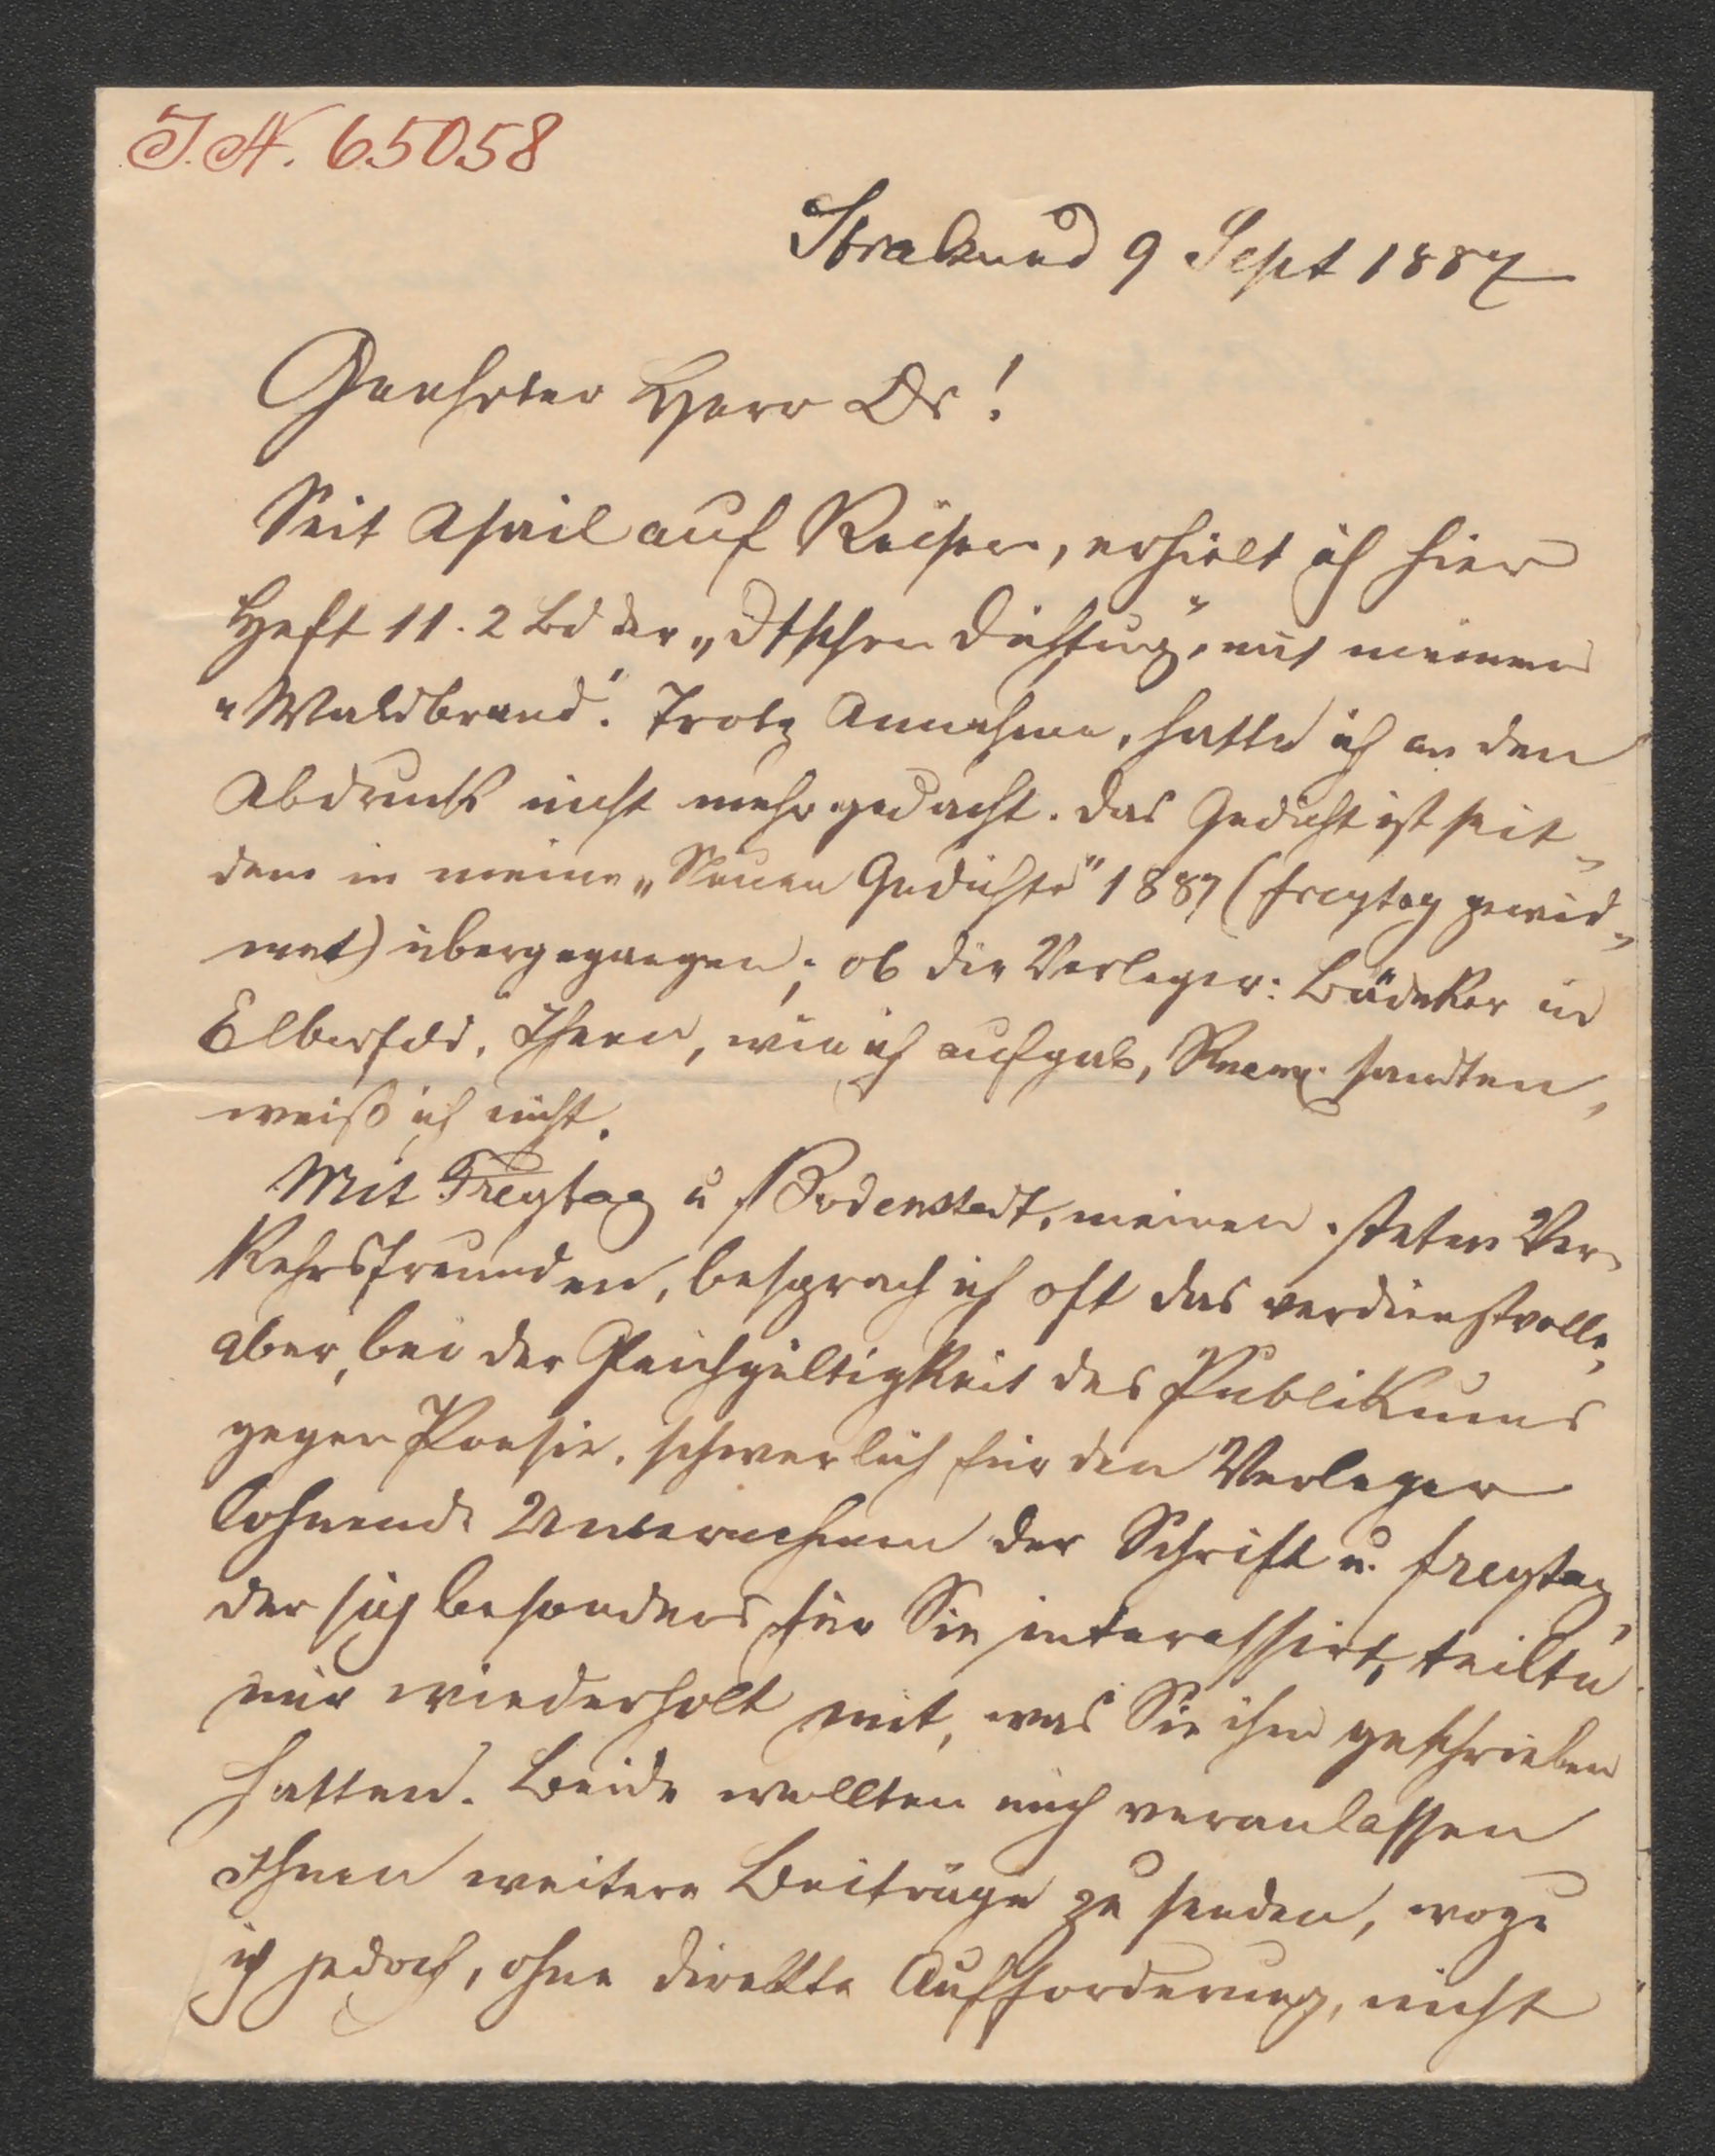 I.N. 65058
Stralsund 9 Sept 1887
Geehrter Herr Dr!
Seit April auf Reisen, erhielt ich hier
Heft 11. 2 Bd der „Dtschen Dichtung", mit meinem
„Waldbrand". Trotz Annahme, hatte ich an den
Abdruck nicht mehr gedacht. Das Gedicht ist seit-
dem in meine „Neuen Gedichte" 1887 (Freytag gewid-
met) übergegangen; ob die Verleger: Bädeker in
Elberfeld, Ihnen, wie ich aufgab, sandten,
weiß ich nicht.
Mit Freytag u Bodenstedt, meinen steten Ver-
kehrsfreunden, besprach ich oft das verdienstvolle,
aber, bei der Gleichgültigkeit des Publikums
gegen Poesie, schwerlich für den Verleger
lohnende Unternehmen der Schrift u. Freytag,
der sich besonders für Sie interessirt, teilte
mir wiederholt mit, was Sie ihm geschrieben
hatten. Beide wollten mich veranlassen
Ihnen weitere Beiträge zu senden, wozu
ich jedoch, ohne direkte Aufforderung, nicht